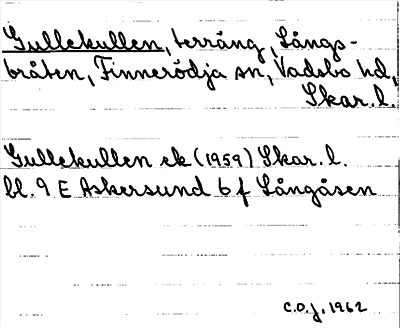 Gullekullen, terräng, Långs-
bråten, Finnerödja sn, Vadsbo hd,
Skar. l.
Gullekullen ek (1959) Skar. l.
bl. 9 E Askersund 6 f Långåsen
C.O.J. 1962